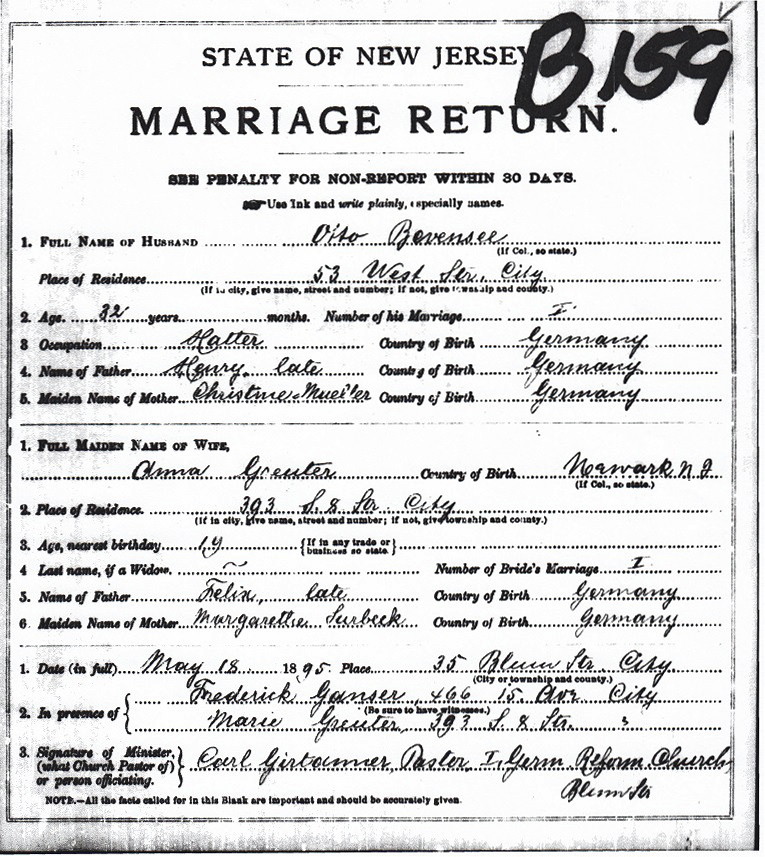 B159
STATE OF NEW JERSEY
MARRIAGE RETURN.
SEE PENALTY FOR NON-REPORT WITHIN 30 DAYS.
Use Ink and write plainly, especially names.
1. FULL NAME OF HUSBAND Otto Bevensee
(If Col., so state.)
Place of Residence 53 West Str. City
(If in city, give name, street and number; if not, give township and county.)
2. Age. 32 years. months. Number of his Marriage I
3 Occupation Hatter Country of Birth Germany
4. Name of Father Henry, late Country of Birth Germany
5. Maiden Name of Mother Christine Mueller Country of Birth Germany
1. FULL MAIDEN NAME OF WIFE,
Anna Greuter Country of Birth Newark N J
(If Col., so state.)
2. Place of Residence. 393 S. 8 Str City
(If in city, give name, street and number; if not, give township and county.)
3. Age, nearest birthday 19 {If in any trade or business so state.}
4 Last name, if a Widow. ~ Number of Bride's Marriage I
5. Name of Father Felix, late Country of Birth Germany
6. Maiden Name of Mother Margarethe Surbeck Country of Birth Germany
1. Date (in full) May 18 1895. Place 35 Blum Str. City
(City or township and county.)
2. In presence of { Frederick Ganser, 466 15. Ave City
(Be sure to have witnesses.)
Marie Greuter, 393 S. 8 Str. "
3. Signature of Minister, (what Church Pastor of) or person officiating. } Carl Girtanner, Pastor I. Germ. Reform. Church
Blum Str
NOTE.—All the facts called for in this Blank are important and should be accurately given.